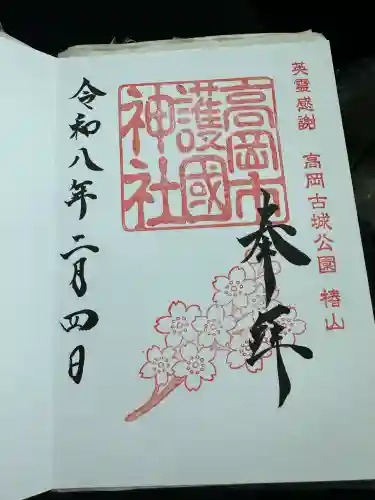 英霊感謝 高岡古城公園 椿山
高岡市
護國
神社
奉拝
令和八年二月四日